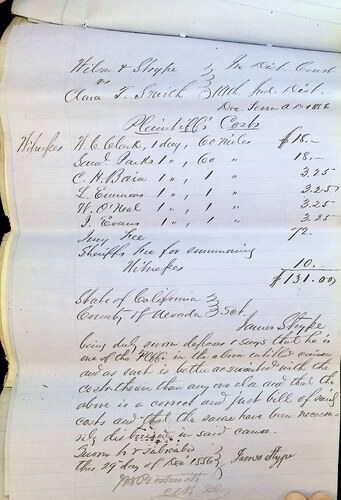 Wilson & Stryke } In Dist. Court
vs
Clara T. Smith } 14th Jud. Dist.
Dec. Term A.D. 1856
Plaintiff's Costs
Witnesses W. C. Clark, 1 day, 60 Miles $18.—
Saml. Parks 1 " , 60 " 18.—
C. H. Bain 1 " , 1 " 3.25
L. Emmons 1 " , 1 " 3.25
W. O'Neal 1 " , 1 " 3.25
J. Evans 1 " , 1 " 3.25
Jury Fee 72.
Sheriffs Fee for summoning
Witnesses 10.
$131.00
State of California }
County of Nevada } Sct.
James Stryke
being duly sworn deposes & says that he is
one of the Plffs. in the above entitled cause
and as such is better acquainted with the
costs therein than any one else and that the
above is a correct and just bill of said
costs and that the same have been necessa-
rily disbursed in said cause.
Sworn to & subscribed }
this 29th day of Dec 1856 } James Stryke
Clk